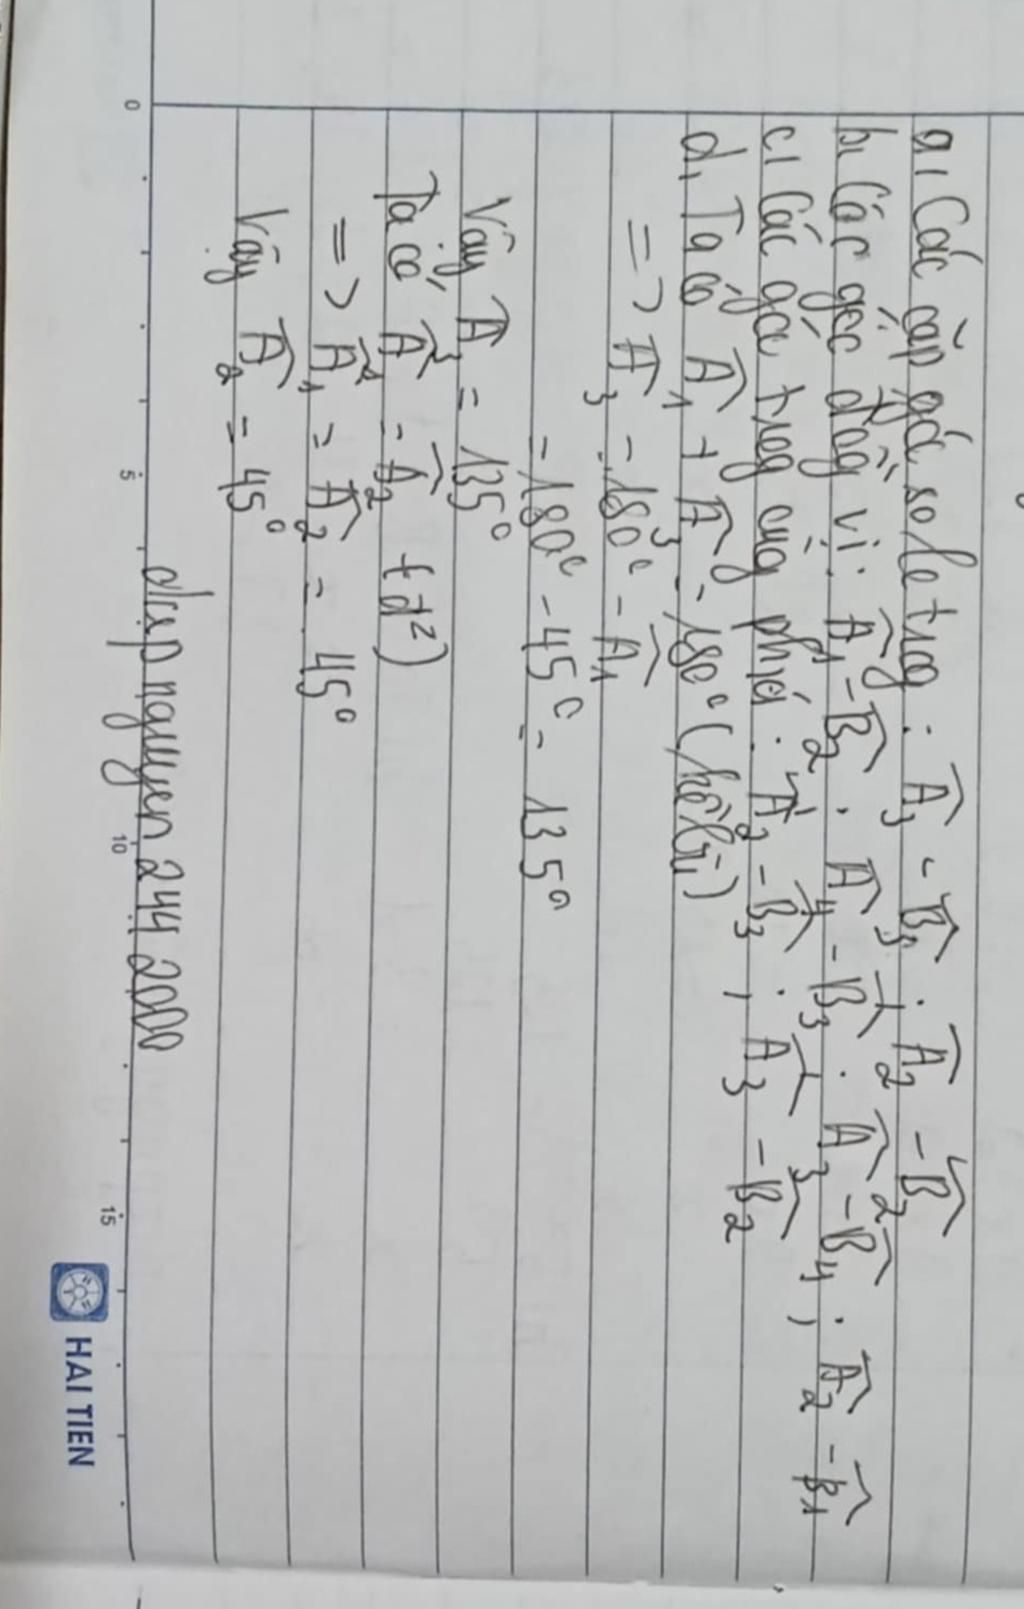 a, Các cặp góc so le trog : Â₃ - B̂₃ ; Â₂ - B̂₂
b, Các góc đồg vị : Â₁ - B̂₂ ; Â₄ - B̂₃ ; Â₃ - B̂₄ ; Â₂ - B̂₁
c, Các góc trog cùg phía : Â₂ - B̂₃ ; Â₃ - B̂₂
d, Ta có Â₁ + Â₃ = 180° (kề bù)
=> Â₃ = 180° - Â₁
= 180° - 45° = 135°
Vậy Â₃ = 135°
Ta có Â₁ = Â₂ (đ²)
=> Â₁ = Â₂ = 45°
Vậy Â₂ = 45°
diepnguyen244 2000
0 5 10 15
HAI TIEN